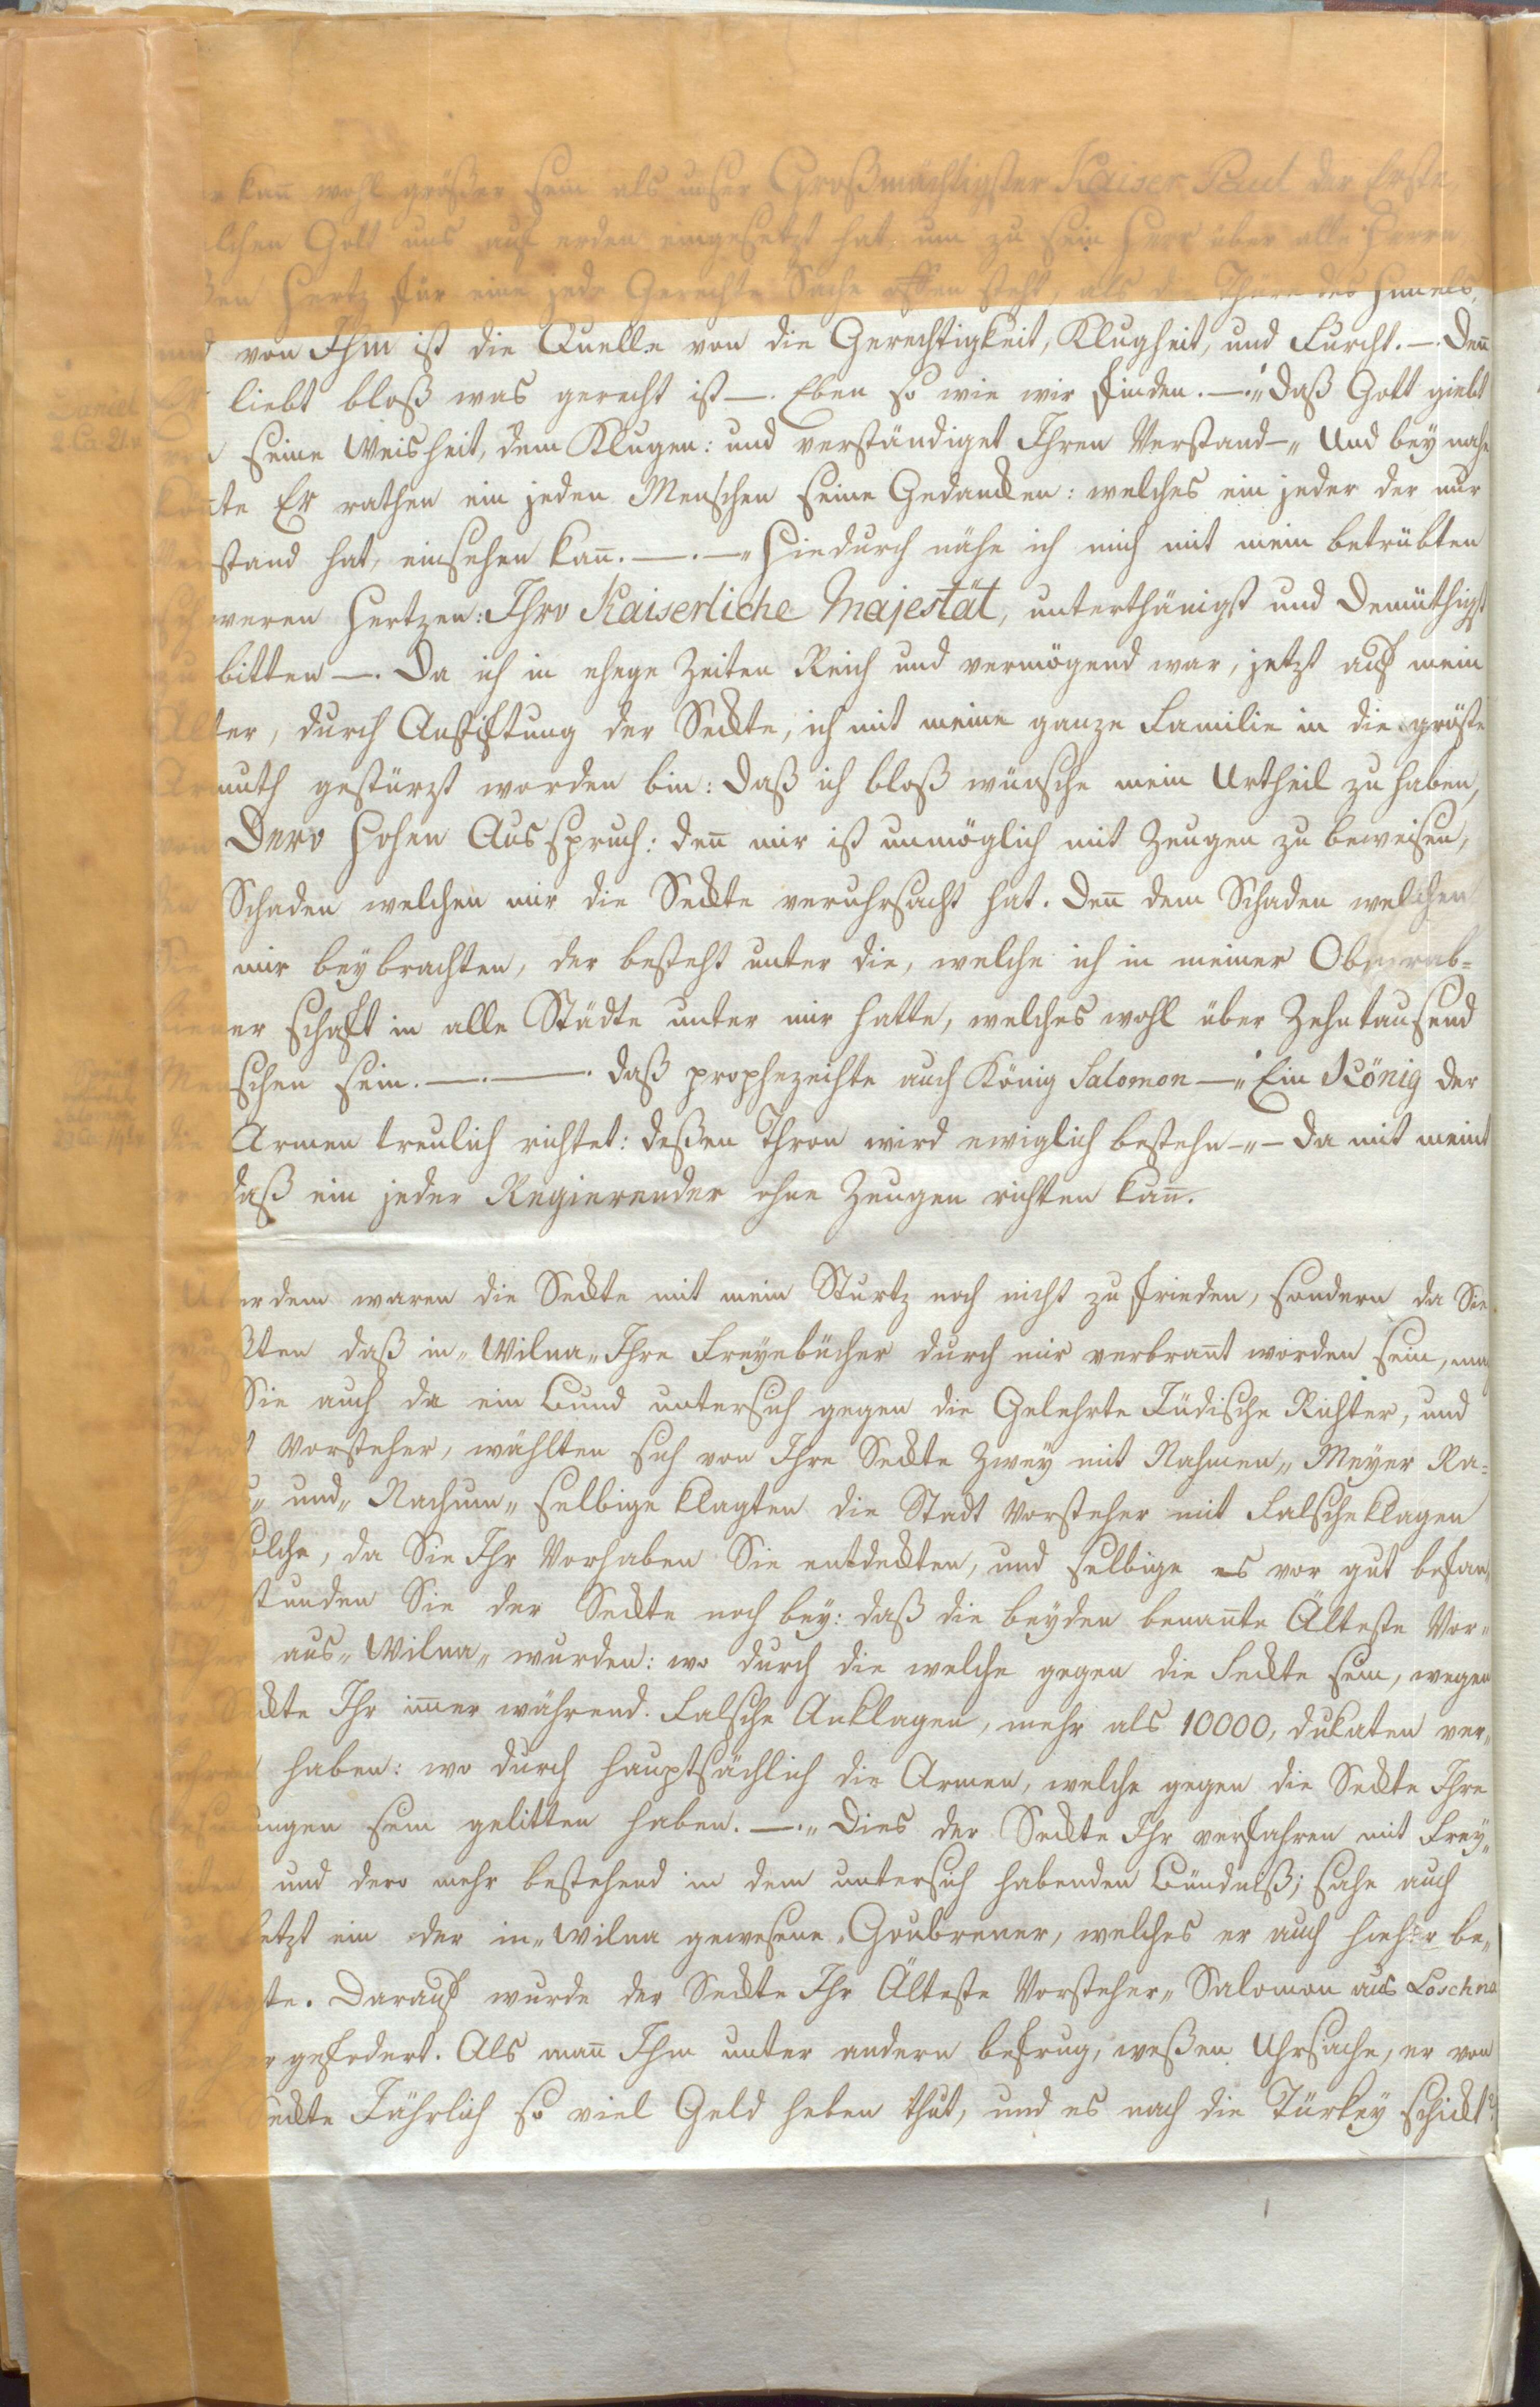 kan̄ wohl größer sein als unser Großmächtigster Kaiser Paul der Erste,
Gott uns auf erden eingesetzt hat um zu sein Herr über alle Herrn
Hertz für eine jede Gerechte Sache offen steht, als die Thüre des Himels,
und von Ihm ist die Quelle von die Gerechtigkeit, Klugheit, und Furcht. —. Den̄
Er liebt bloß was gerecht ist —. Eben so wie wir finden. —. „Daß Gott giebt
seine Weisheit, dem Klugen: und verständiget Ihren Verstand —„ Und bey nahe
könte Er rathen ein jeden Menschen seine Gedancken: welches ein jeder der nur
Verstand hat, einsehen kan̄. —. —„ Hiedurch nähe ich mich mit mein betrübten
schweren Hertzen: Ihro Kaiserliche Majestät, unterthänigst und Demüthigst
zu bitten —. Da ich in ehege Zeiten Reich und vermögend war, jetzt auf mein
Alter, durch Anstiftung der Seckte, ich mit meine ganze Familie in die gröste
Armuth gestürzt worden bin: Daß ich bloß wünsche mein Urtheil zu haben,
von Dero Hohen Ausspruch: den̄ mir ist unmöglich mit Zeugen zu beweisen,
den Schaden welchen mir die Seckte veruhrsacht hat. Den̄ dem Schaden welchen
Sie mir beybrachten, der besteht unter die, welche ich in meiner Oberrab=
biener schaft in alle Städte unter mir hatte, welches wohl über Zehntausend
Menschen sein. —. —. daß prophezeihte auch König Salomon —„ Ein König der
die Armen treulich richtet: deßen Thron wird ewiglich bestehn —„— Da mit meint
er daß ein jeder Regierender ohne Zeugen richten kan̄.
Uberdem waren die Seckte mit mein Sturtz noch nicht zu frieden, sondern da Sie
wußten daß in „Wilna„ Ihre Freyebücher durch mir verbran̄t worden sein,
Sie auch da ein Bund untersich gegen die Gelehrte Jüdische Richter, und
Stadt Vorsteher, wählten sich von Ihre Seckte Zwey mit Nahmen „Meyer Ra=
„ und „Nachum„ selbige klagten die Stadt Vorsteher mit Falscheklagen
solche, da Sie Ihr Vorhaben Sie entdeckten, und selbige es vor gut befan„
den stunden Sie der Seckte noch bey: daß die beyden benan̄te Älteste Vor„
steher aus „Wilna„ wurden: wo durch die welche gegen die Seckte sein, wegen
der Seckte Ihr im̄er während. Falsche Anklagen, mehr als 10000, dukaten ver„
lohren haben: wo durch hauptsächlich die Armen, welche gegen die Seckte Ihre
Gesinnungen sein gelitten haben. —. „Dies der Seckte Ihr verfahren mit Frey„
heiten und dero mehr bestehend in dem untersich habenden Bündniß; sahe auch
zuletzt ein der in „Wilna gewesene„ Goubrener, welches er auch hieher be„
richtigte. Darauf wurde der Seckte Ihr Älteste Vorsteher „Salomon aus Loschna
hieher gefodert. Als man̄ Ihm unter andern befrug, weßen Uhrsache, er von
die Seckte Jährlich so viel Geld heben thut, und es nach die Türkey schickt?
Daniel
2. Ca. 21. v
Salomon